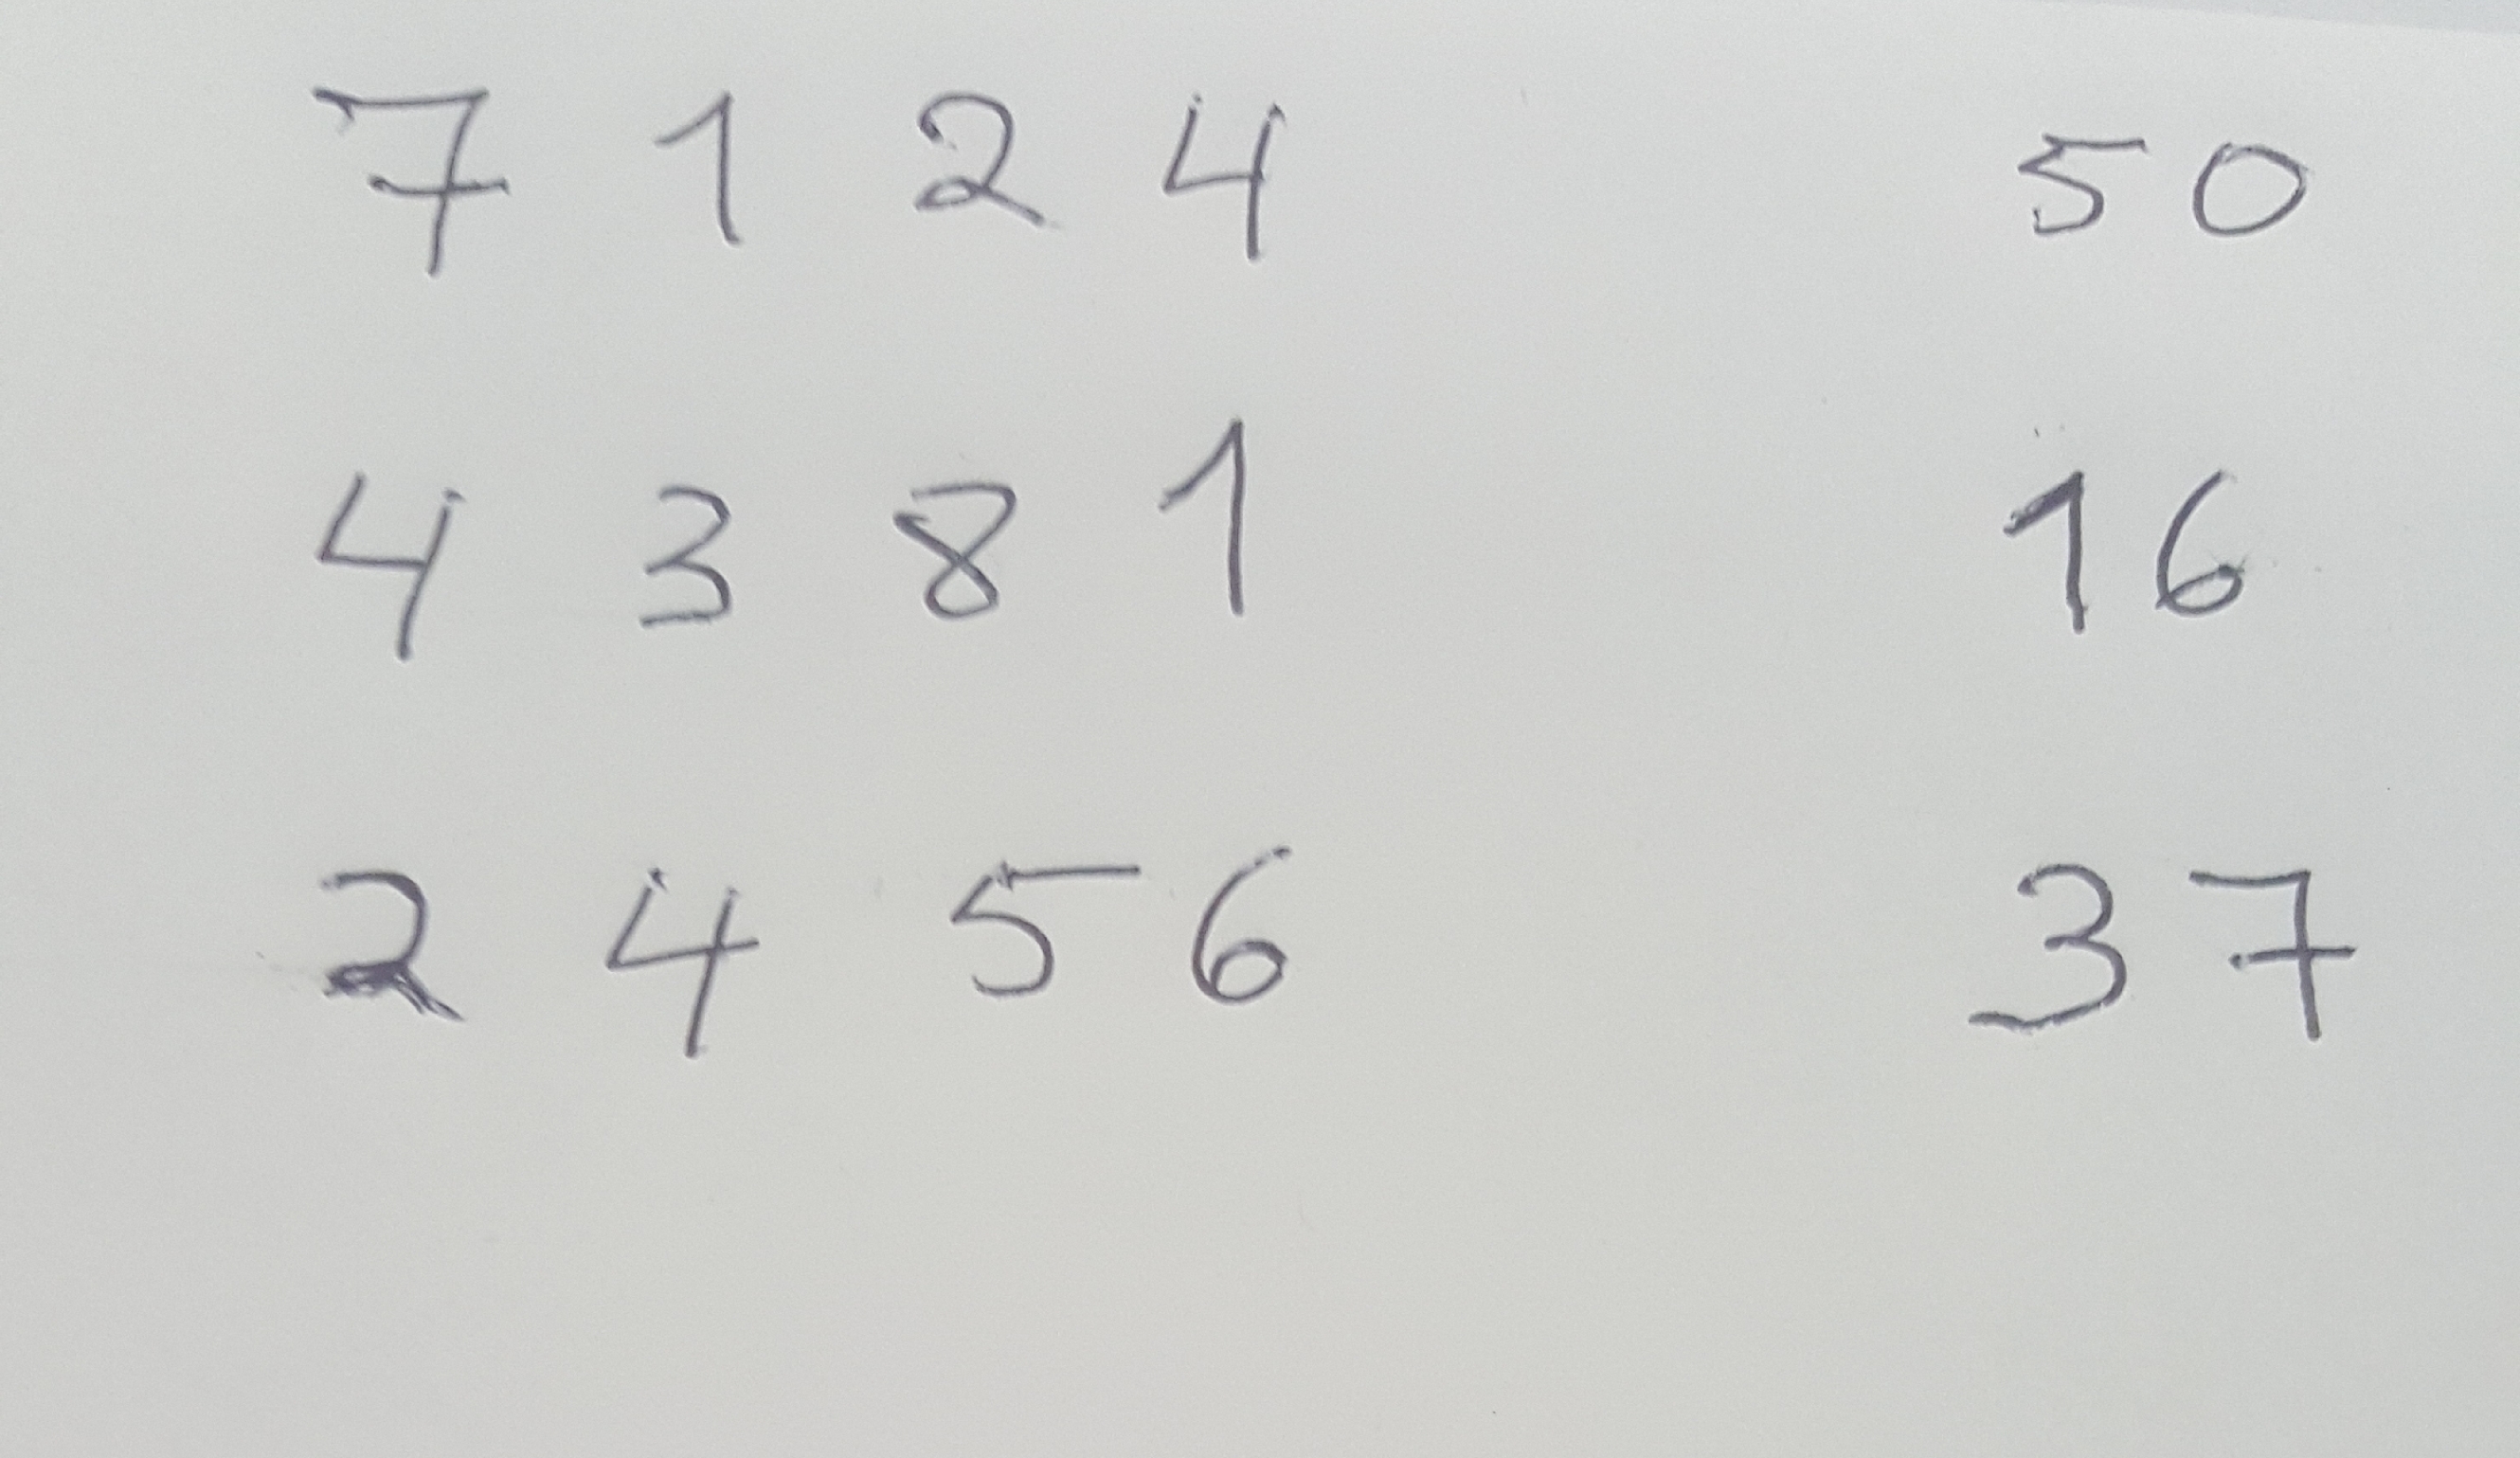 7 1 2 4 50
4 3 8 1 16
2 4 5 6 37